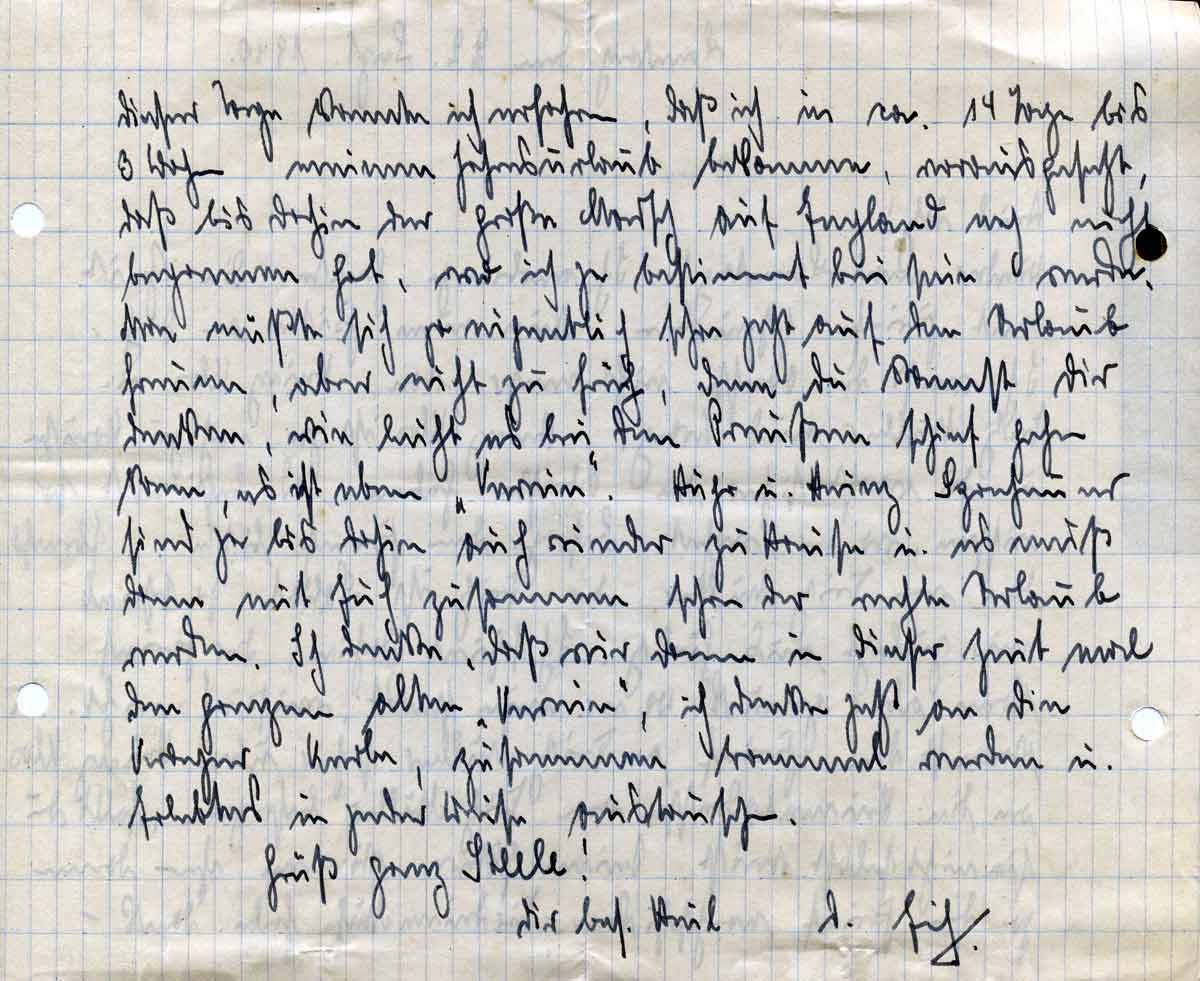 dieser Tage konnte ich erfahren, daß ich in ca. 14 Tage bis
3 Wochen meinen Jahresurlaub bekomme, vorausgesetzt,
daß bis dahin der große Marsch auf England noch nicht
begonnen hat, wo ich ja bestimmt bei sein werde.
Man müßte sich ja eigentlich schon jetzt auf den Urlaub
freuen, aber nicht zu früh, denn du kannst dir
denken, wie leicht es bei den Preußen schief gehen
kann, es ist eben „Verein“. u. Heinz
sind ja bis dahin auch wieder zu Hause u. es muß
dann mit Euch zusammen schon der rechte Urlaub
werden. Ich denke, daß wir dann in dieser Zeit mal
den ganzen alten „Verein“, ich denke jetzt an die
Kerle, zusammen trommel werden u.
Erlebtes in jeder Weise austauschen.
Grüß ganz Steele!
Dir bes. Heil d.